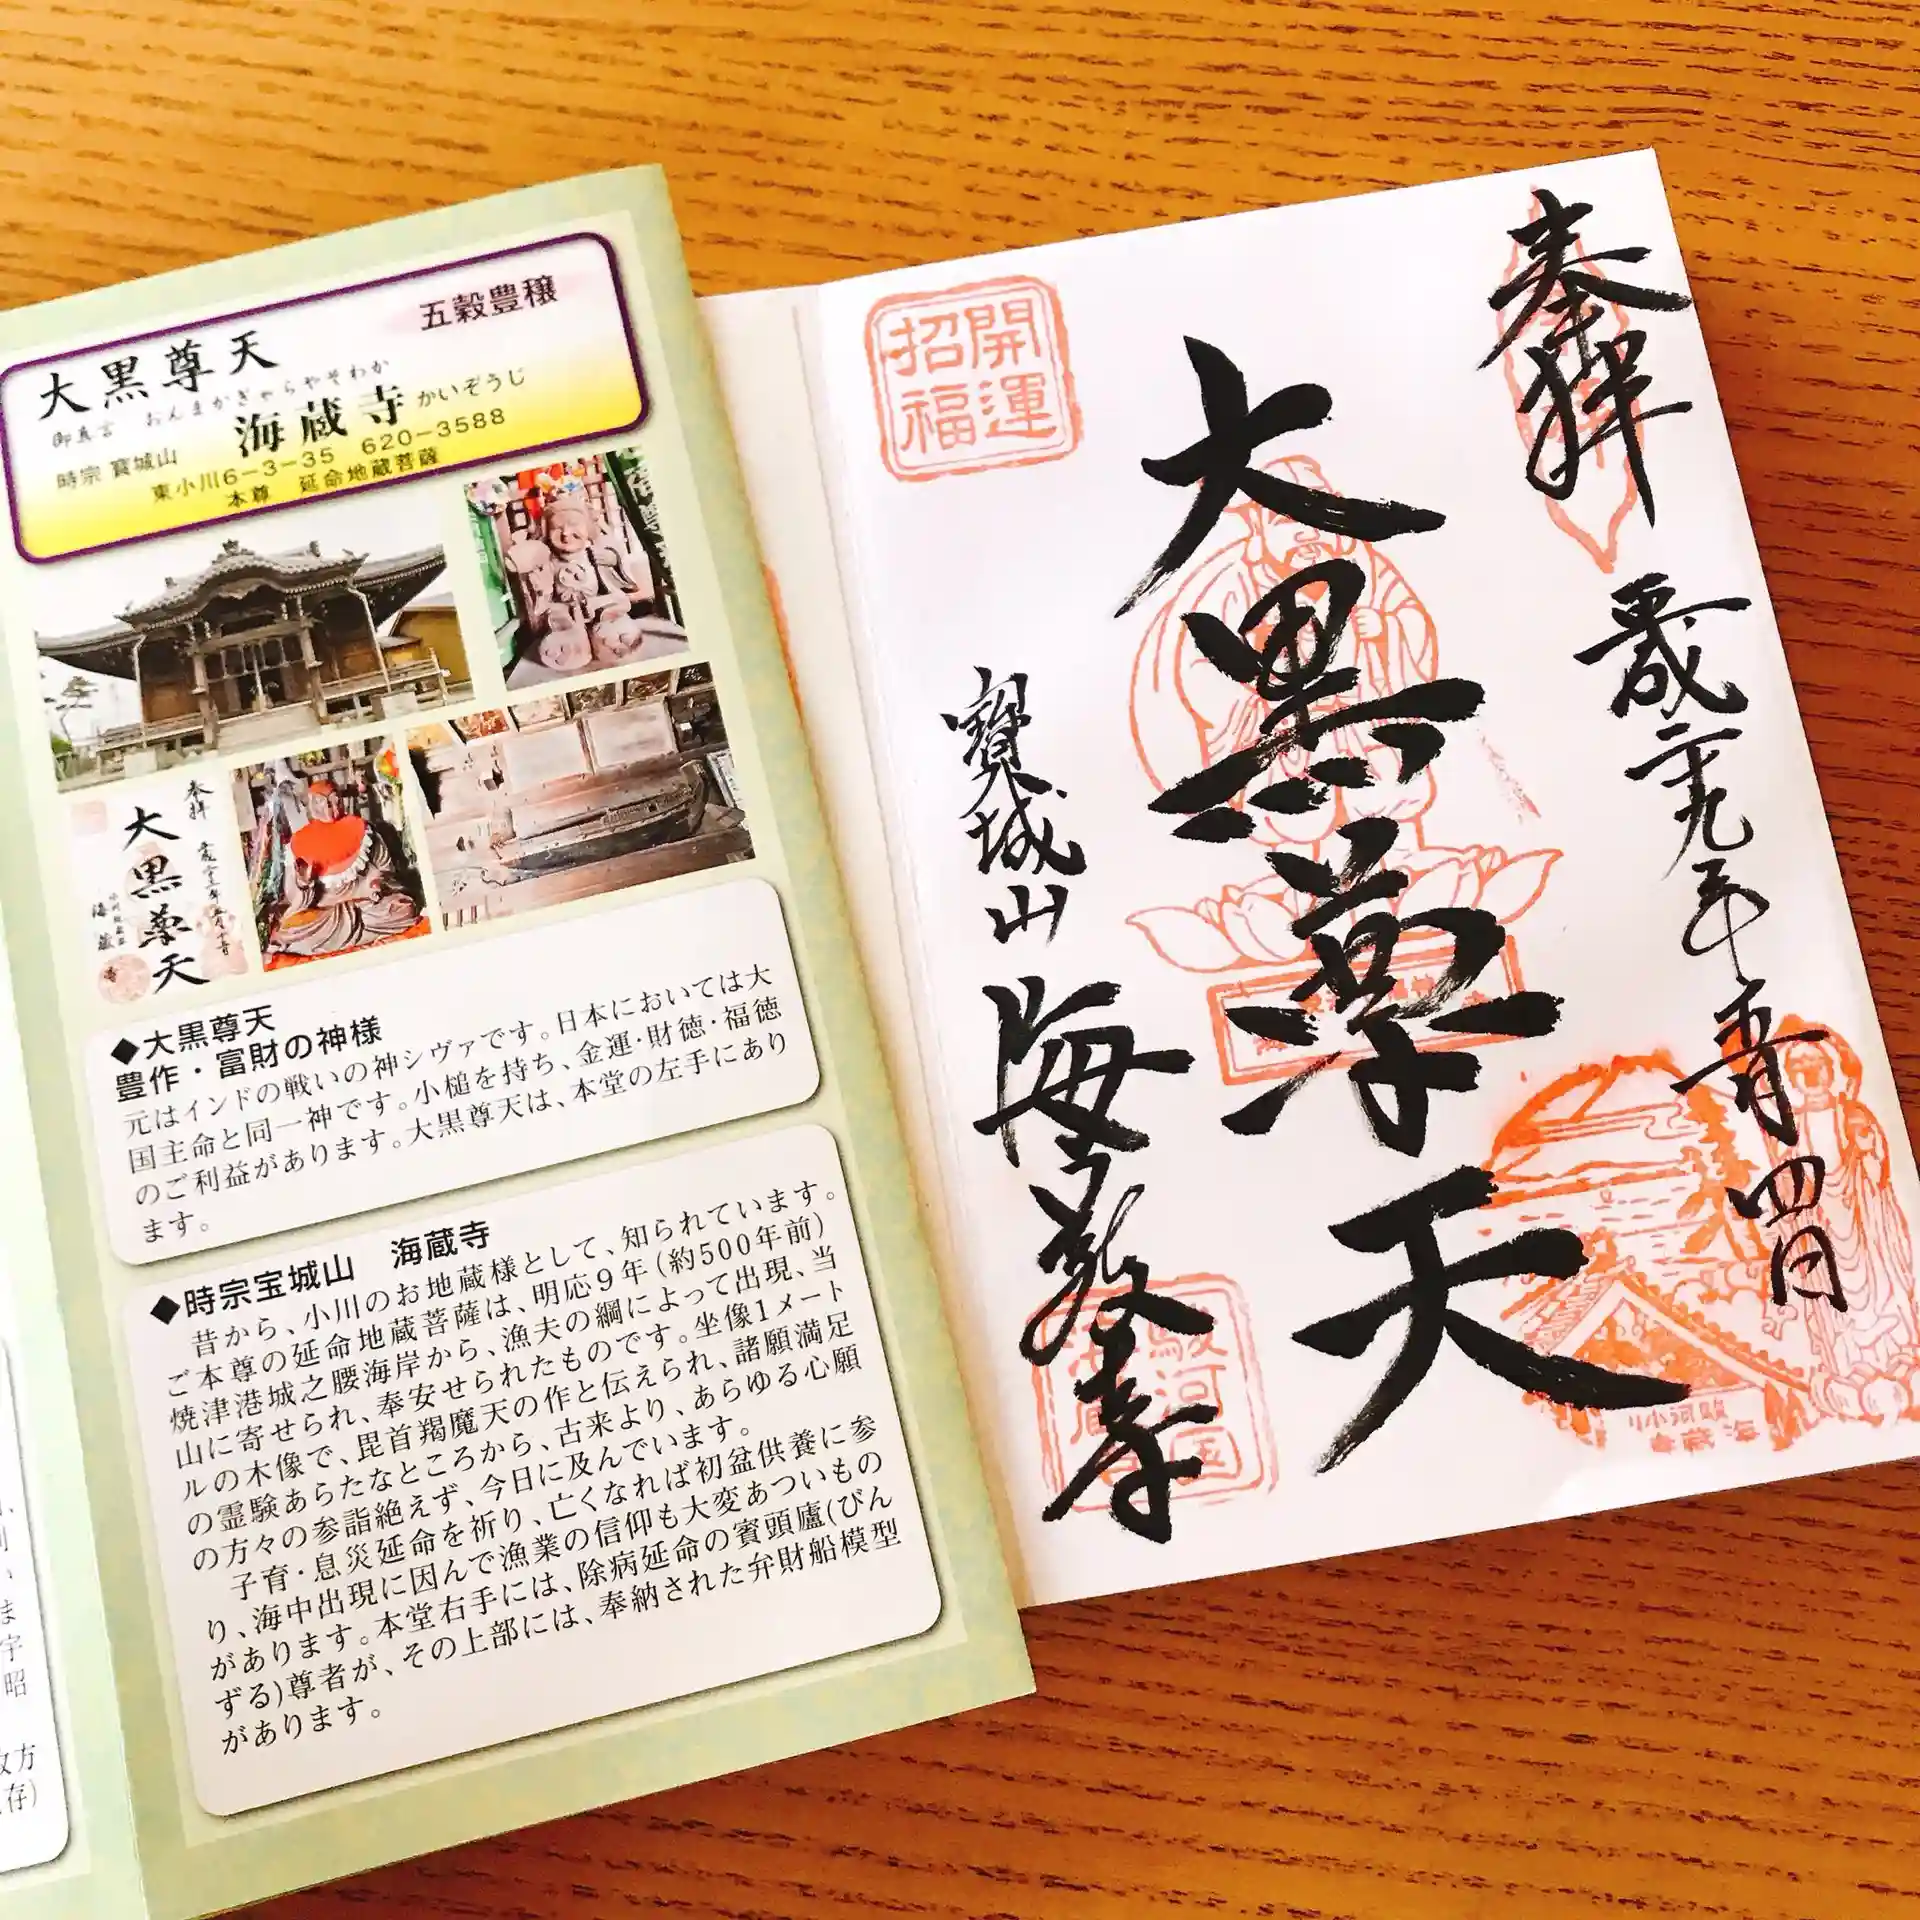 五穀豊穣
大黒尊天
御真言 おんまかぎゃらやそわか
海蔵寺 かいぞうじ
時宗 寳城山
東小川6-3-35 620-3588
本尊 延命地蔵菩薩
奉拝
大黒尊天
◆大黒尊天
豊作・富財の神様
元はインドの戦いの神シヴァです。日本においては大
国主命と同一神です。小槌を持ち、金運・財徳・福徳
のご利益があります。大黒尊天は、本堂の左手にあり
ます。
◆時宗宝城山 海蔵寺
昔から、小川のお地蔵様として、知られています。
ご本尊の延命地蔵菩薩は、明応9年(約500年前)
焼津港城之腰海岸から、漁夫の網によって出現、当
山に寄せられ、奉安せられたものです。坐像1メート
ルの木像で、毘首羯魔天の作と伝えられ、諸願満足
の霊験あらたなところから、古来より、あらゆる心願
の方々の参詣絶えず、今日に及んでいます。
子育・息災延命を祈り、亡くなれば初盆供養に参
り、海中出現に因んで漁業の信仰も大変あついもの
があります。本堂右手には、除病延命の賓頭盧(びん
ずる)尊者が、その上部には、奉納された弁財船模型
があります。
奉拝
開運
招福
大黒尊天
寳城山
海蔵寺
駿河国
小川
駿河小川
海蔵寺